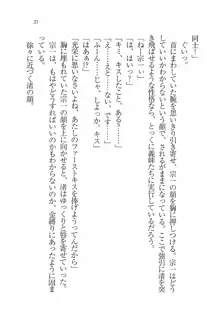 同士！」
ぐいっ。
首にまわしていた腕を思いきり引き寄せ、宗一の顔を胸に押しつける。宗一はどう
していいかわからないというか、なにをしていいかわからない。ここで強引に渚を突
き飛ばせるような性格なら、とっくに義妹たちに実行しているだろう。
「ね、宗一」
「は、はいっ」
「キミ、キスしたこと、ある？」
「え、え、えと……ない……です」
「ふ〜ん……じゃ、しょっか、キス」
「はあぁ！？」
「光栄に思いなさいよね、あたしのファーストキスを捧げようってんだから」
胸に埋もれていた宗一の顔を上に向かせると、渚はゆっくりと唇を寄せていった。
宗一の体は、もはやどうすればいいのかもわからないまま、金縛りにあったように固
まっている。
徐々に近づく渚の顔。